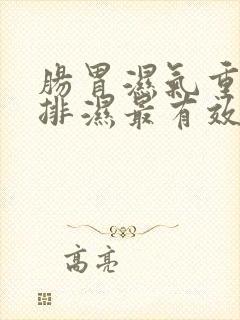 腸胃濕氣重
排濕最有效
高亮